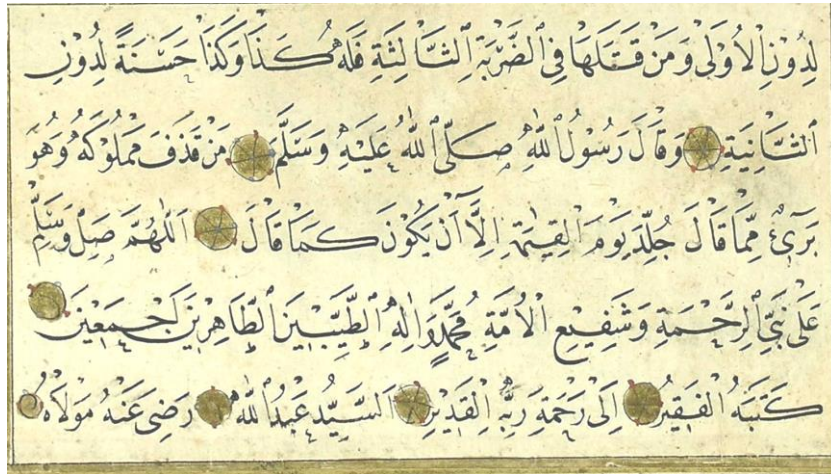 لِدُوْنِ الْاُوْلٰى وَمَنْ قَتَلَهَا فِى الضَّرْبَةِ الثَّالِثَةِ فَلَهُ كَذَا وَكَذَا حَسَنَةً لِدُوْنِ
الثَّانِيَةِ وَقَالَ رَسُوْلُ اللّٰهِ صَلَّى اللّٰهُ عَلَيْهِ وَسَلَّمَ مَنْ قَذَفَ مَمْلُوْكَهُ وَهُوَ
بَرِىْءٌ مِمَّا قَالَ جُلِّدَ يَوْمَ الْقِيٰمَةِ اِلَّا اَنْ يَكُوْنَ كَمَا قَالَ اَللّٰهُمَّ صَلِّ وَسَلِّمْ
عَلٰى نَبِىِّ الرَّحْمَةِ وَشَفِيْعِ الْاُمَّةِ مُحَمَّدٍ وَاٰلِهِ الطَّيِّبِيْنَ الطَّاهِرِيْنَ اَجْمَعِيْنَ
كَتَبَهُ الْفَقِيْرُ اِلٰى رَحْمَةِ رَبِّهِ الْقَدِيْرِ اَلسَّيِّدُ عَبْدُ اللّٰهِ رَضِىَ عَنْهُ مَوْلَاهُ